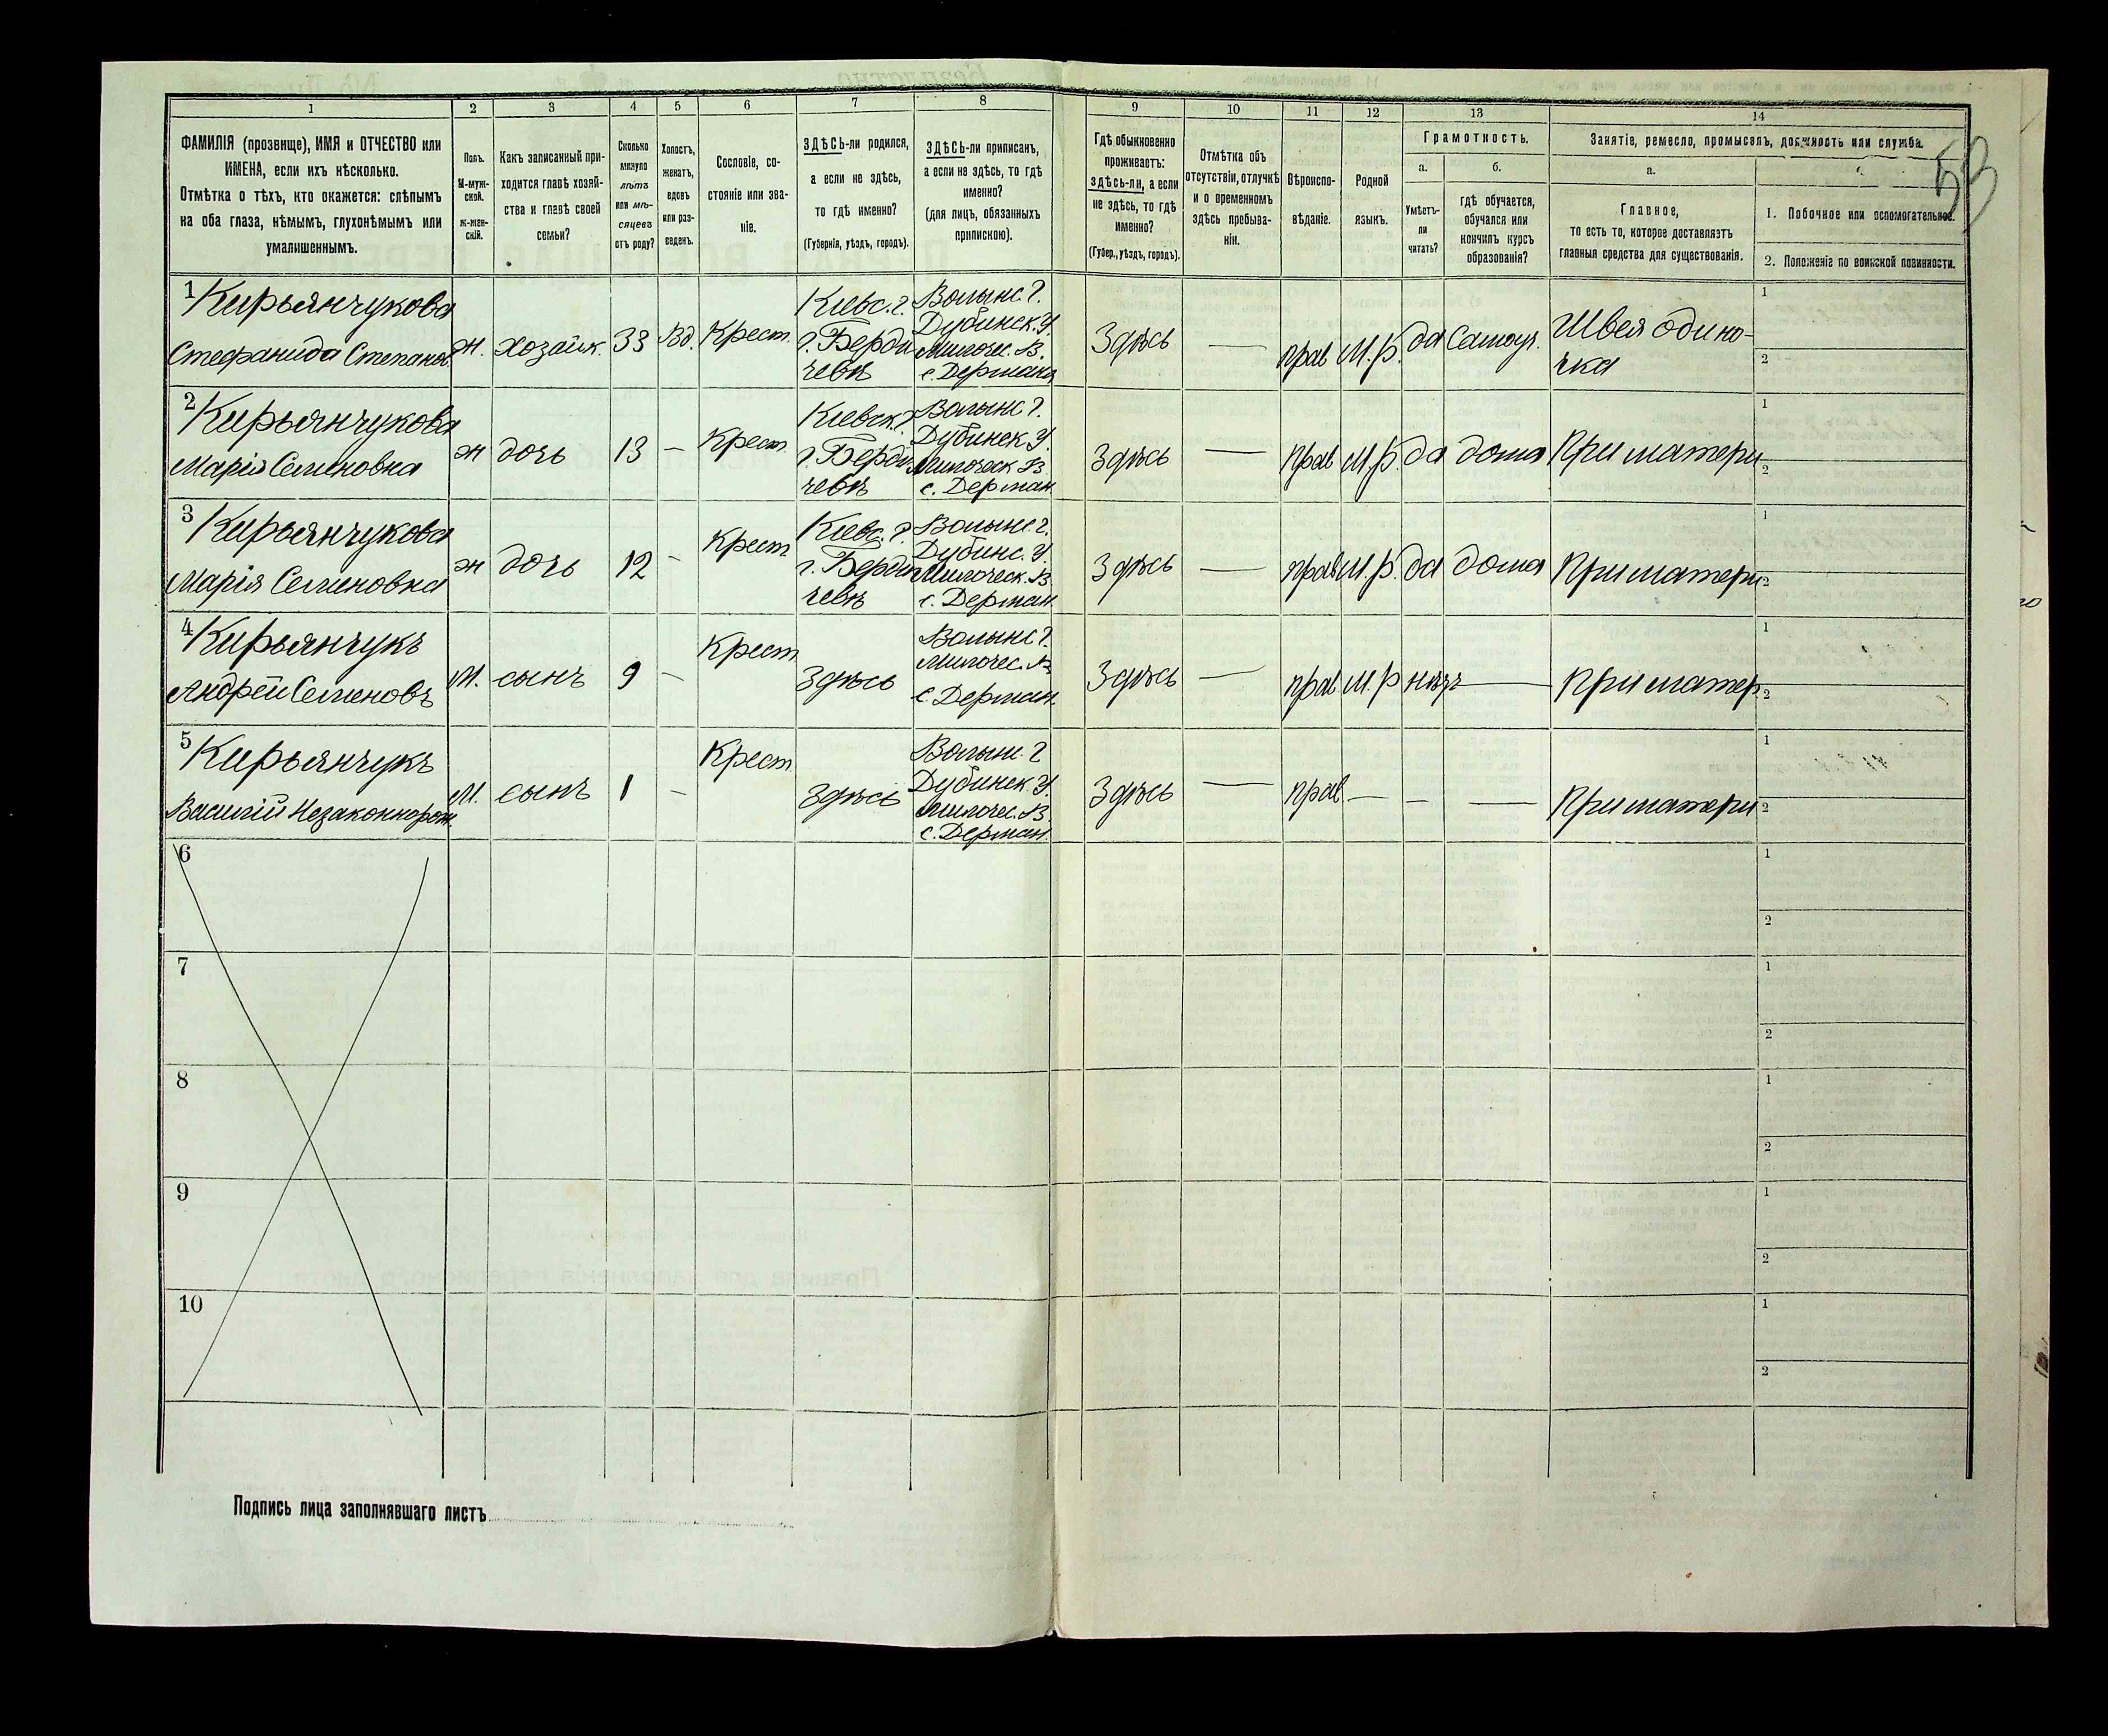 53
1 2 3 4 5 6 7 8 9 10 11 12 13 14
ФАМИЛІЯ (прозвище), ИМЯ и ОТЧЕСТВО или
ИМЕНА, если ихъ нѣсколько.
Отмѣтка о тѣхъ, кто окажется: слѣпымъ
на оба глаза, нѣмымъ, глухонѣмымъ или
умалишеннымъ.
Полъ.
М-муж-
ской.
Ж-жен-
скій.
Какъ записанный при-
ходится главѣ хозяй-
ства и главѣ своей
семьи?
Сколько
минуло
лѣтъ
или мѣ-
сяцевъ
отъ роду?
Холостъ,
женатъ,
вдовъ
или раз-
веденъ.
Сословіе, со-
стояніе или зва-
ніе.
ЗДѢСЬ-ли родился,
а если не здѣсь,
то гдѣ именно?
(Губернія, уѣздъ, городъ).
ЗДѢСЬ-ли приписанъ,
а если не здѣсь, то гдѣ
именно?
(для лицъ, обязанныхъ
припискою).
Гдѣ обыкновенно
проживаетъ:
здѣсь-ли, а если
не здѣсь, то гдѣ
именно?
(Губер., уѣздъ, городъ).
Отмѣтка объ
отсутствіи, отлучкѣ
и о временномъ
здѣсь пребыва-
ніи.
Вѣроиспо-
вѣданіе.
Родной
языкъ.
Грамотность.
а.
Умѣетъ-
ли
читать?
б.
гдѣ обучается,
обучался или
кончилъ курсъ
образованія?
Занятіе, ремесло, промыселъ, должность или служба.
а.
Главное,
то есть то, которое доставляетъ
главныя средства для существованія.
1. Побочное или вспомогательное.
2. Положеніе по воинской повинности.
1 Кирьянчукова
Стефанида Степанов.
ж.
хозяйк.
33
Вд.
Крест.
Кіевс. г.
г. Берди
чевъ
Волынс. г.
Дубинск. У.
Милочес. В.
с. Дермана
Здѣсь
—
прав
М.р.
да
Самоуч.
Швея одино-
чка
1
2
2 Кирьянчукова
Марія Семеновна
ж
дочь
13
—
Крест.
Кіевск. г
г. Берди
чевъ
Волынс г.
Дубинск У.
Милоческ В.
с. Дерман
Здѣсь
—
прав
М.р.
да
дома
При матери
1
2
3 Кирьянчукова
Марія Семеновна
ж
дочь
12
-
Крест.
Кіевс. г.
г. Берди
чевъ
Волынс. г.
Дубинс. У.
Милоческ. В
с. Дерман
Здѣсь
—
прав
М.р.
да
дома
При матери
1
2
4 Кирьянчукъ
Андрей Семеновъ
М.
сынъ
9
-
Крест
Здѣсь
Волынс г.
Милочес. В,
с. Дерман.
Здѣсь
—
прав
М.р
нѣтъ
—
При матер.
1
2
5 Кирьянчукъ
Василій Незаконнорож.
М.
сынъ
1
-
Крест
Здѣсь
Волын. г
Дубинск У.
Милочес. В.
с. Дерман.
Здѣсь
—
прав
—
—
—
При матери
1
2
6
1
2
7
1
2
8
1
2
9
1
2
10
1
2
Подпись лица заполнявшаго листъ